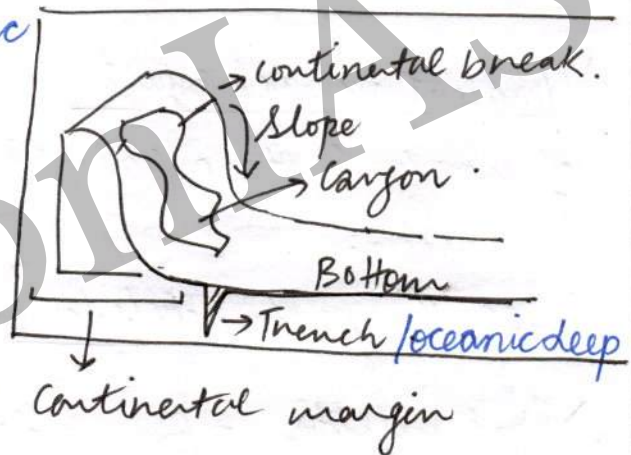 c
continental break.
Slope
Canyon.
Bottom
Trench /oceanic deep
Continental margin
omIAS